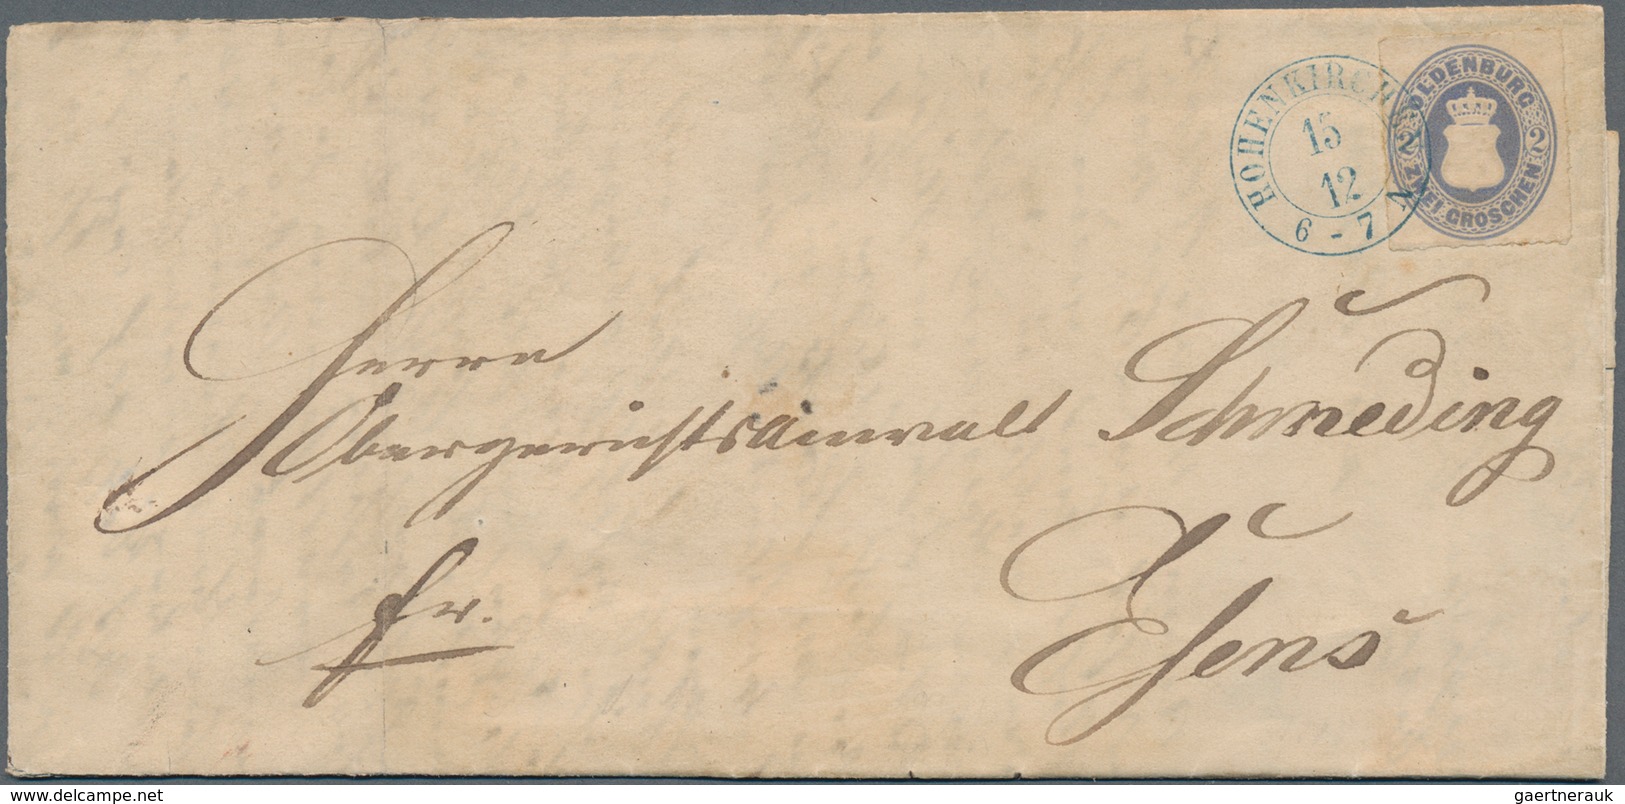 OLDENBURG
2 2
ZWEI GROSCHEN
HOHENKIRCH
15
12
6 - 7 N
Herrn
Obergerichtsanwalt Schmeding
fr.
Esens
www.delcampe.net
gaertnerauk